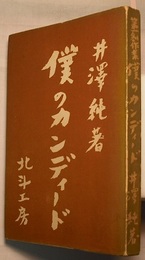 井澤純著
僕のカンディード
北斗工房
僕のカンディード 井澤純著